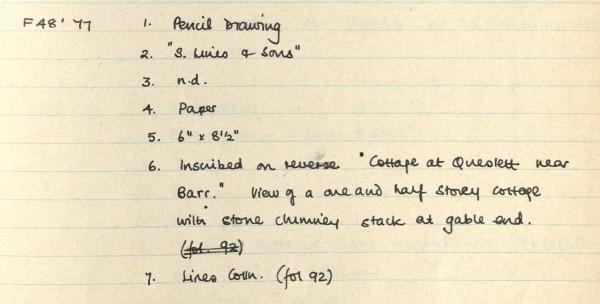 F48'77 1. Pencil Drawing
2. "S. Lines & Sons"
3. n.d.
4. Paper
5. 6" x 8½"
6. Inscribed on reverse "Cottage at Queslett near
Barr." View of a one and half storey cottage
with stone chimney stack at gable end.
(fol. 92)
7. Lines Colln. (fol 92)